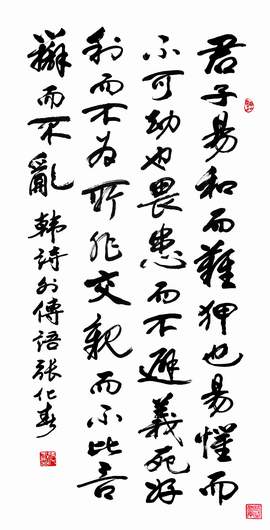 君子易和而難狎也易懼而
不可劫也畏患而不避義死好
利而不為所非交親而不比言
辯而不亂 韓詩外傳語張化春